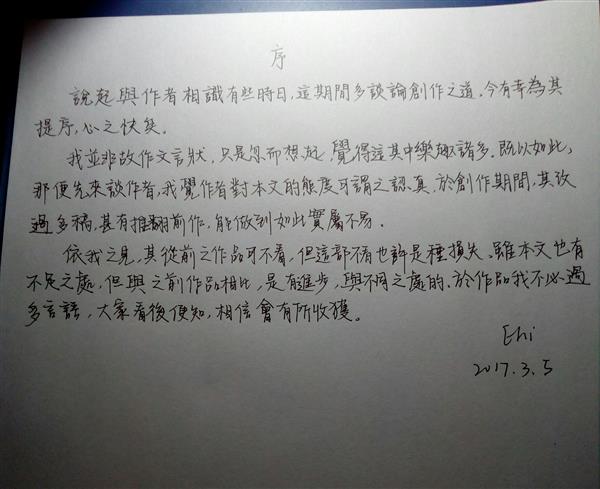 序
說起與作者相識有些時日,這期間多談論創作之道。今有幸為其
提序,心之快矣。
我並非故作文言狀,只是忽而想起,覺得這其中樂趣諸多。既以如此,
那便先來談作者,我覺作者對本文的態度可謂之認真,於創作期間,其改
過多稿,甚有推翻前作,能做到如此實屬不易。
依我之見,其從前之作品可不看,但這部不看也許是種損失。雖本文也有
不足之處,但與之前作品相比,是有進步,與不同之處的。於作品我不必過
多言語,大家看後便知,相信會有所收獲。
Ehi
2017.3.5